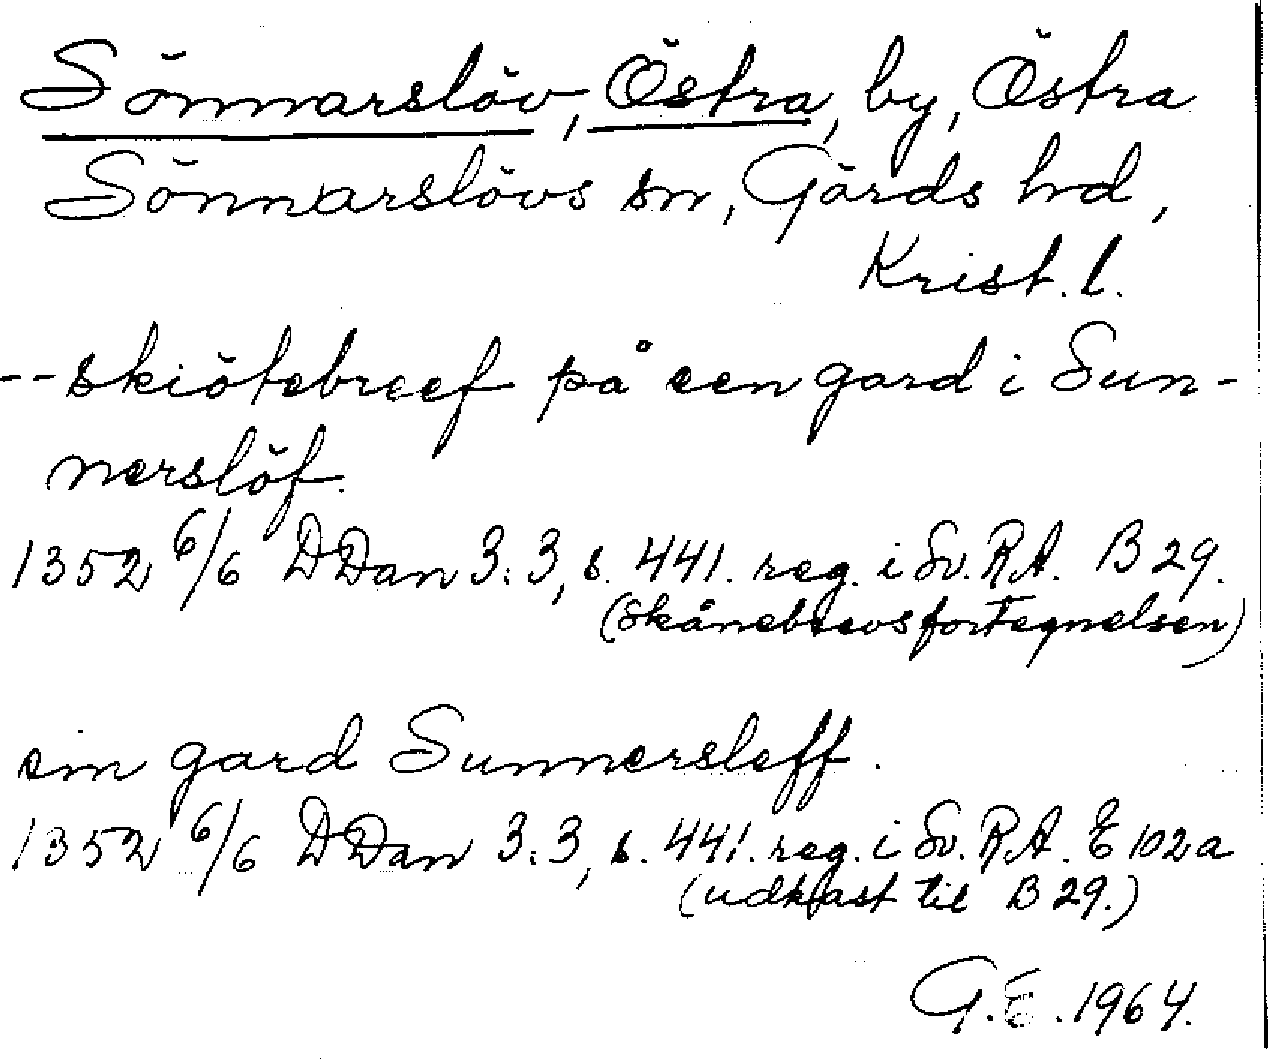 Sönnarslöv, Östra, by, Östra
Sönnarslövs sn, Gärds hd,
Krist. l.
-- skiötebreef på een gard i Sun-
nerslöf.
1352 6/6 DDan 3:3, s. 441. reg. i Sv. RA. B 29.
(Skånebrevsfortegnelsen)
sin gard Sunnersleff.
1352 6/6 DDan 3:3, s. 441. reg. i Sv. RA. E 102a
(udkast til B 29.)
G.E. 1964.